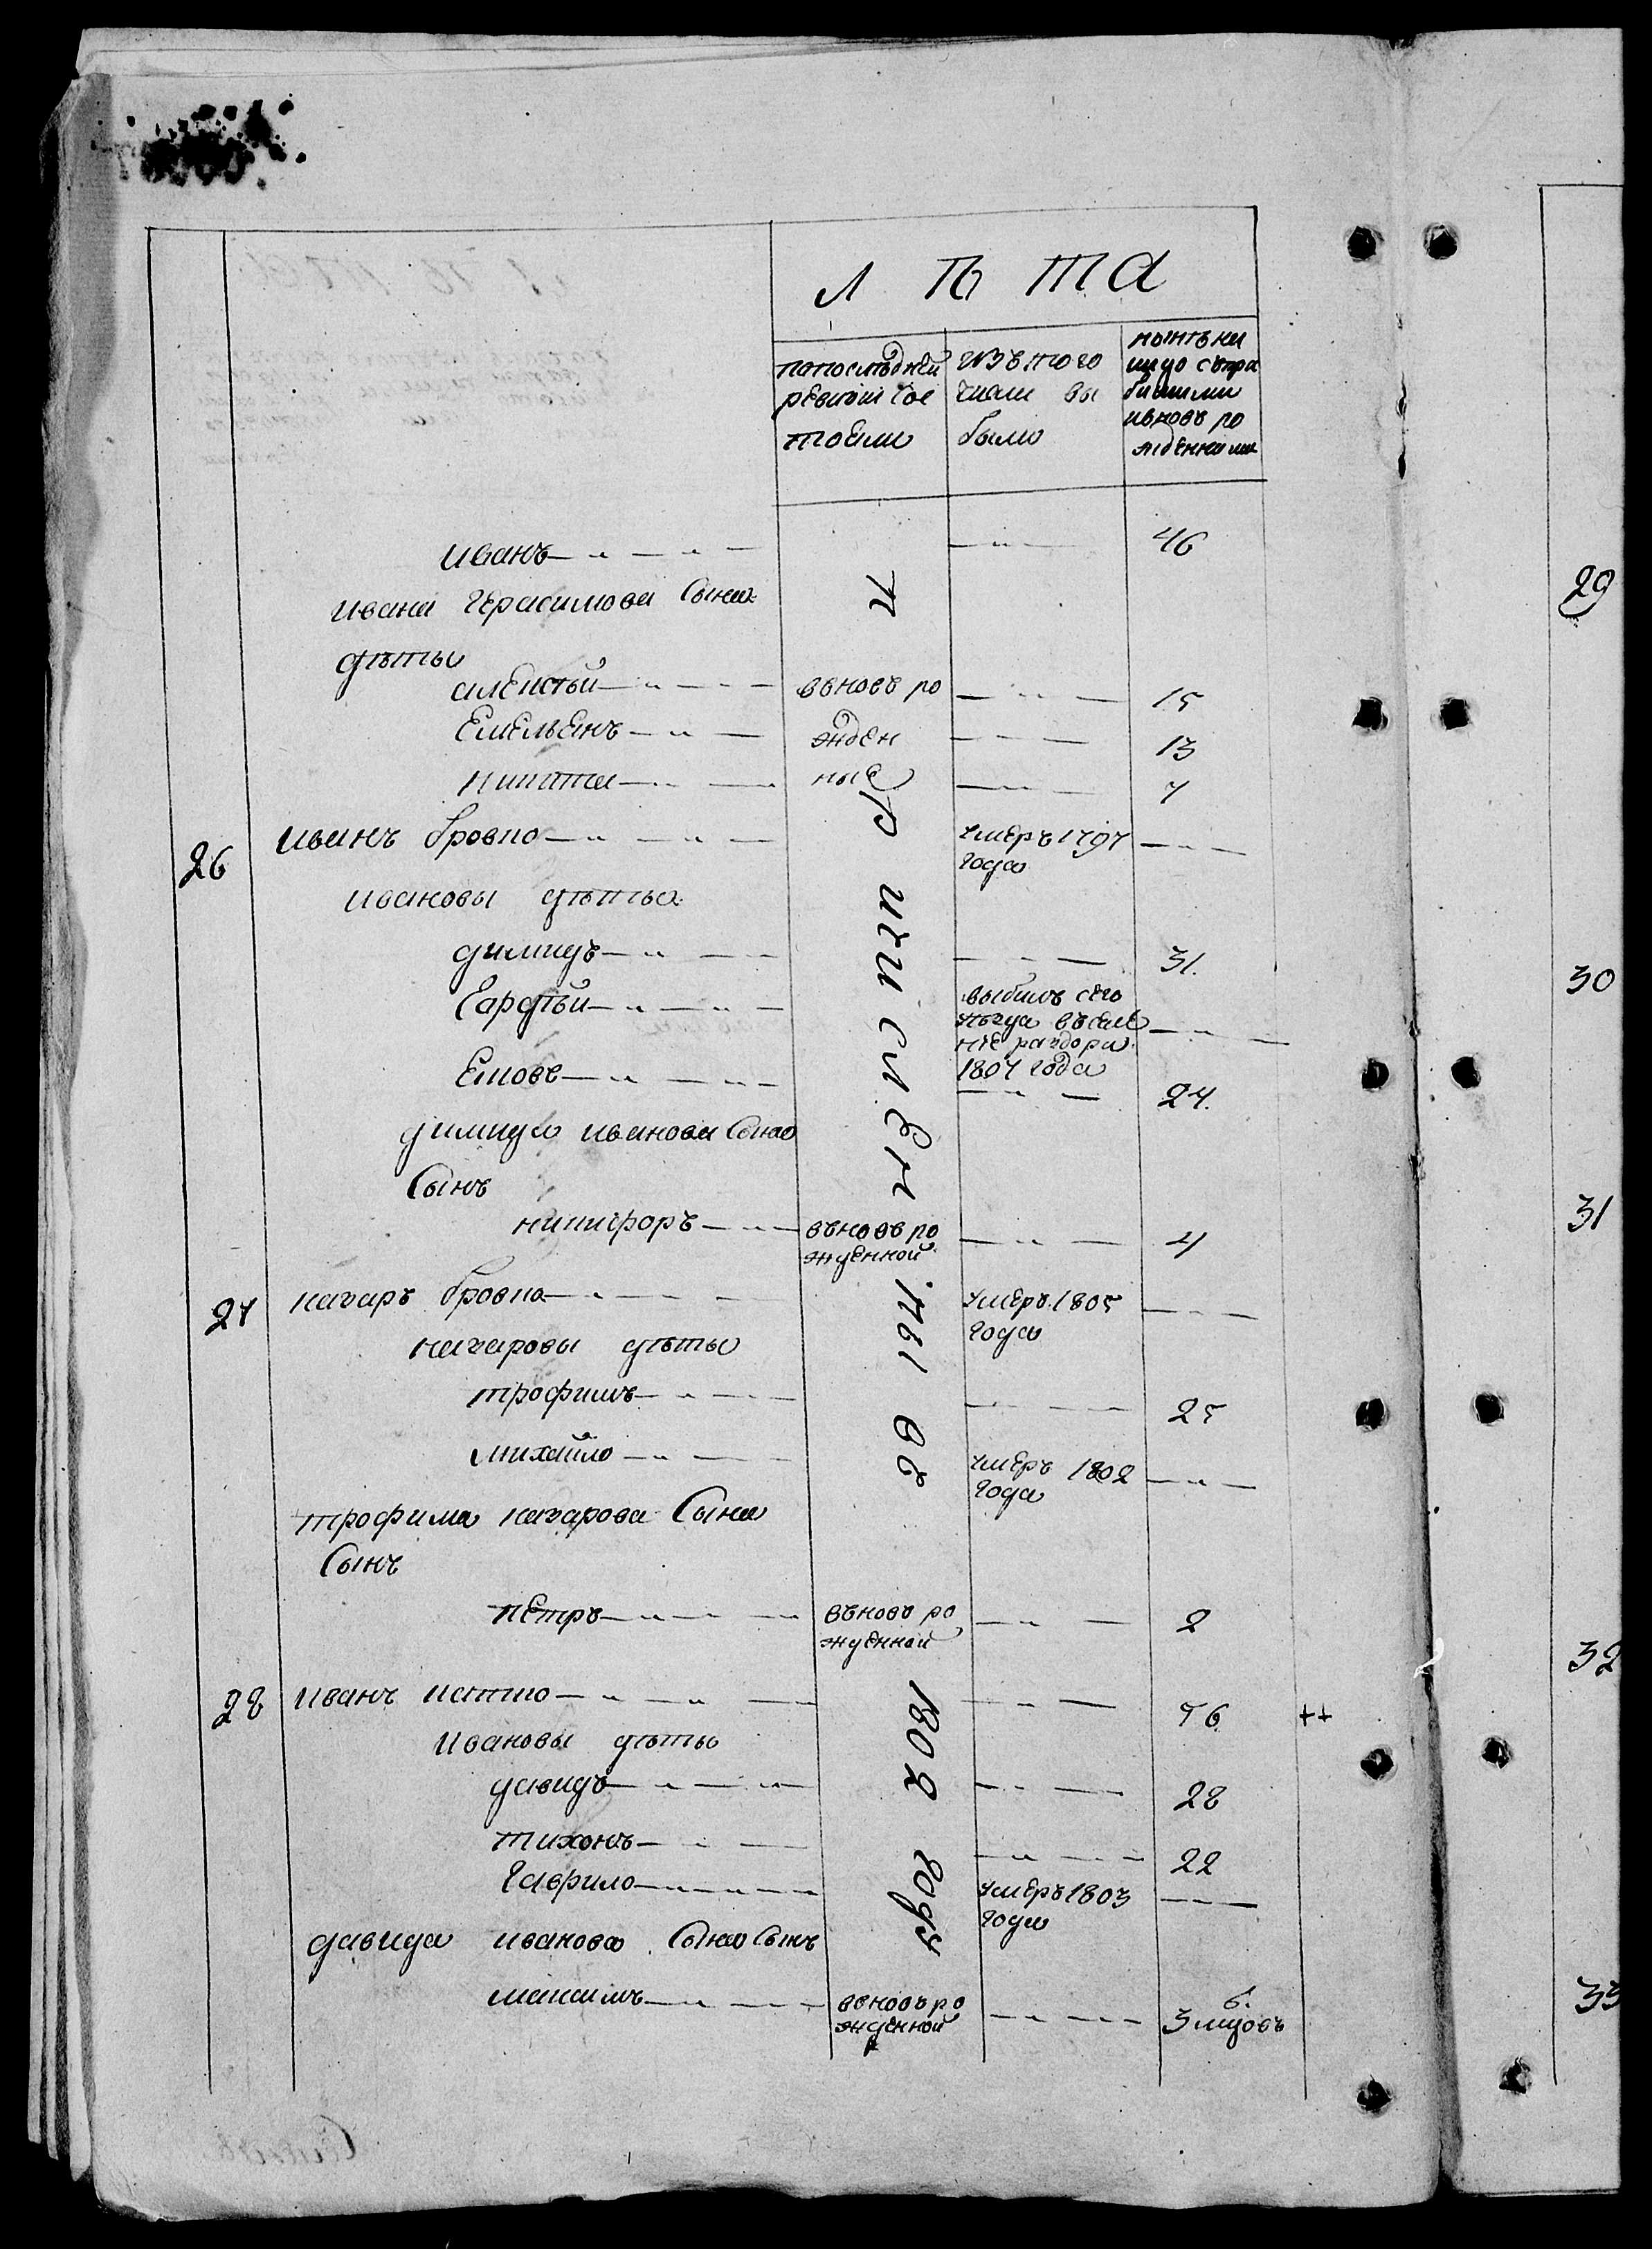 лѣта
попослѣдней ревизіи сос тояли
изътого числа вы было
нынѣна лицо съпри былыми ивновь ро жденными
иванъ 46
ивана Герасимова Сына
дѣты
алексѣй вновь ро 15
Емельенъ жден 13
никита ныя 7
26 иванъ бровко умеръ 1797 года
ивановы дѣты
димидъ 31.
Гардѣй выбылъ сего уѣзда въсел ніе раздоры 1807 года
Емовъ 24.
димида иванова Сына
Сынъ
никифоръ вновь ро жденной 4
27 назаръ бровко умеръ 1805 года
назаровы дѣты
трофимъ 25
михайло умеръ 1802 года
трофима назарова Сына
Сынъ
петръ вновь ро жденной 2
28 иванъ 56 ++
ивановы дѣты
давидъ 28
тихонъ 22
Гаврило умеръ 1803 года
давида иванова Сына Сынъ
максимъ вновь ро жденной 6. Змцовъ
причислен 1791 въ 1802 году
29
30
31
32
33